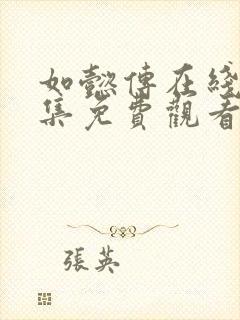 如懿傳在綫
集免費觀看
張英